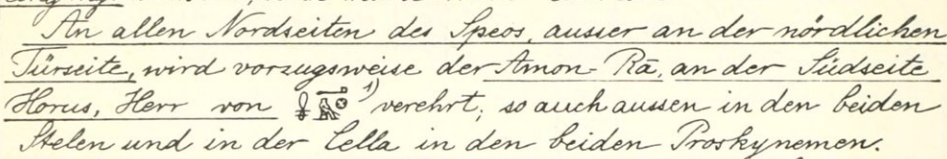 An allen Nordseiten des Speos, ausser an der nördlichen
Türseite, wird vorzugsweise der Amon-Rā, an der Südseite
Horus, Herr von 1) verehrt; so auch aussen in den beiden
Stelen und in der Cella in den beiden Proskynemen.